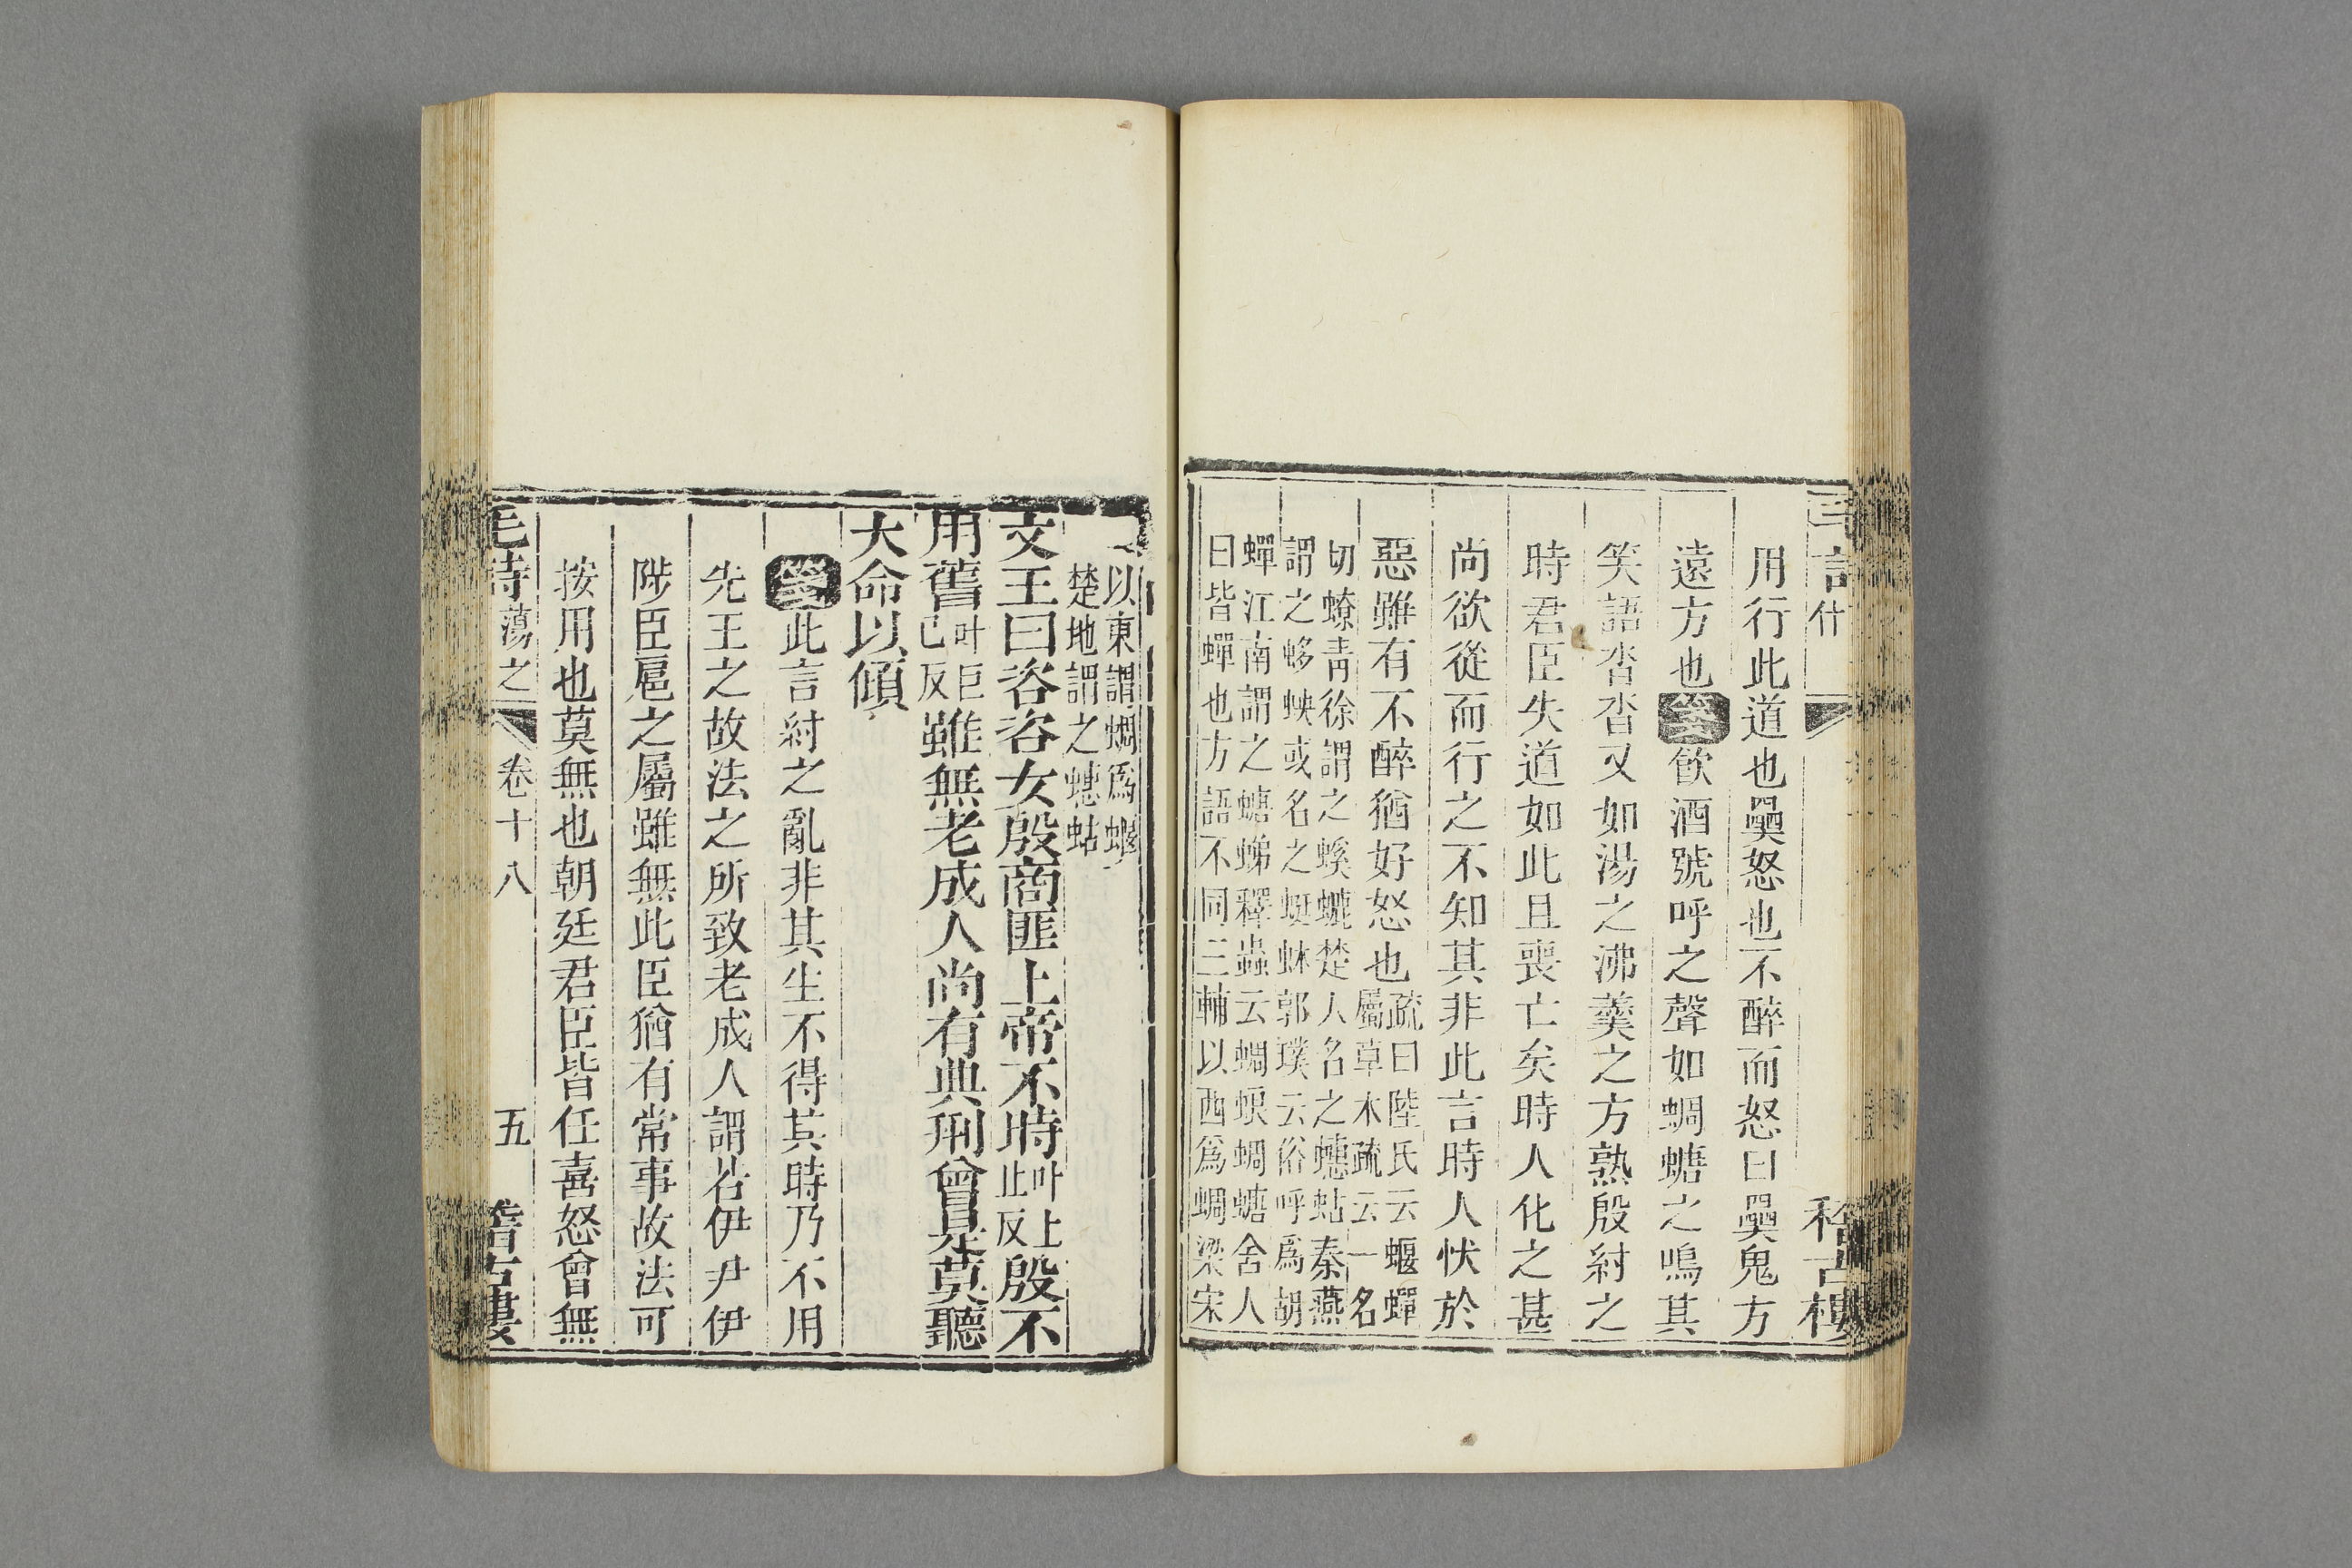 稽古樓
用行此道也奰怒也不醉而怒曰奰鬼方
遠方也箋飲酒號呼之聲如蜩螗之鳴其
笑語沓沓又如湯之沸羹之方熟殷紂之
時君臣失道如此且喪亡矣時人化之甚
尚欲從而行之不知其非此言時人忕於
惡雖有不醉猶好怒也疏曰陸氏云蝘蟬
屬草木疏云一名
切蟟青徐謂之螇螰楚人名之蟪蛄秦燕
謂之蛥蚗或名之蜓蚞郭璞云俗呼爲胡
蟬江南謂之螗蛦釋蟲云蜩蜋蜩螗舍人
曰皆蟬也方語不同三輔以西爲蜩梁宋
以東謂蜩爲蝘
楚地謂之蟪蛄
文王曰咨咨女殷商匪上帝不時叶上止反殷不
用舊叶巨已反雖無老成人尚有典刑曾是莫聽
大命以傾
箋此言紂之亂非其生不得其時乃不用
先王之故法之所致老成人謂若伊尹伊
陟臣扈之屬雖無此臣猶有常事故法可
按用也莫無也朝廷君臣皆任喜怒曾無
毛詩蕩之 卷十八 五 稽古樓